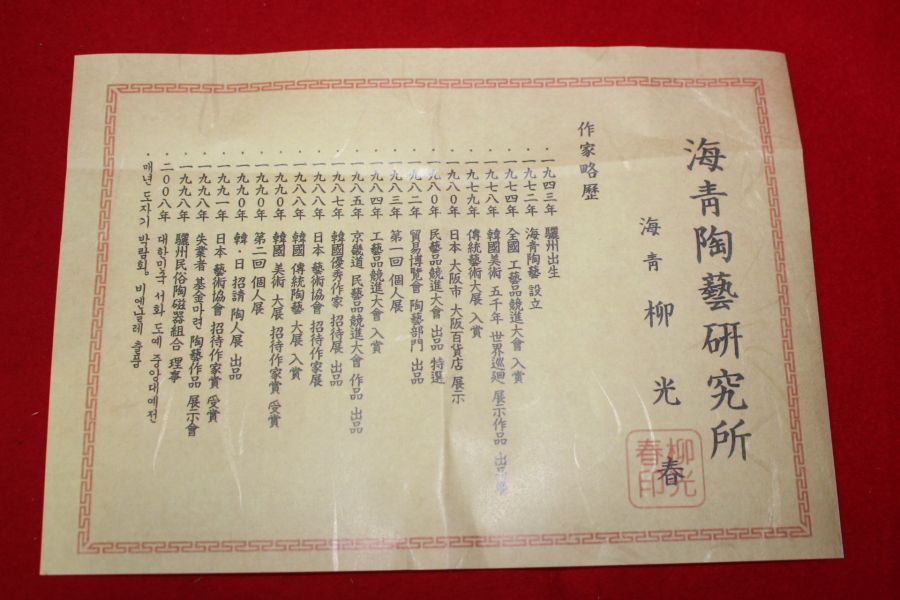 海靑陶藝硏究所
海靑 柳光春
柳光
春印
作家略歷
· 一九四三年 驪州出生
· 一九七二年 海靑陶藝 設立
· 一九七四年 全國 工藝品競進大會 入賞
· 一九七八年 韓國美術 五千年 世界巡廻 展示作品 出品
· 一九七九年 傳統藝術大展 入賞
· 一九八0年 日本 大阪市 大阪百貨店 展示
· 一九八0年 民藝品競進大會 出品 特選
· 一九八二年 貿易博覽會 陶藝部門 出品
· 一九八三年 第一回 個人展
· 一九八四年 工藝品競進大會 入賞
· 一九八五年 京畿道 民藝品競進大會 作品 出品
· 一九八七年 韓國優秀作家 招待展 出品
· 一九八八年 日本 藝術協會 招待作家展
· 一九八八年 韓國 傳統陶藝 大展 入賞
· 一九九0年 韓國 美術 大展 招待作家賞 受賞
· 一九九0年 第二回 個人展
· 一九九0年 韓 · 日 招請 陶人展 出品
· 一九九一年 日本 藝術協會 招待作家賞 受賞
· 一九九八年 失業者 基金마련 陶藝作品 展示會
· 一九九八年 驪州民俗陶磁器組合 理事
· 二00八年 대한미국 서화 도예 중앙대예전
· 매년 도자기 박람회. 비엔날레 출품